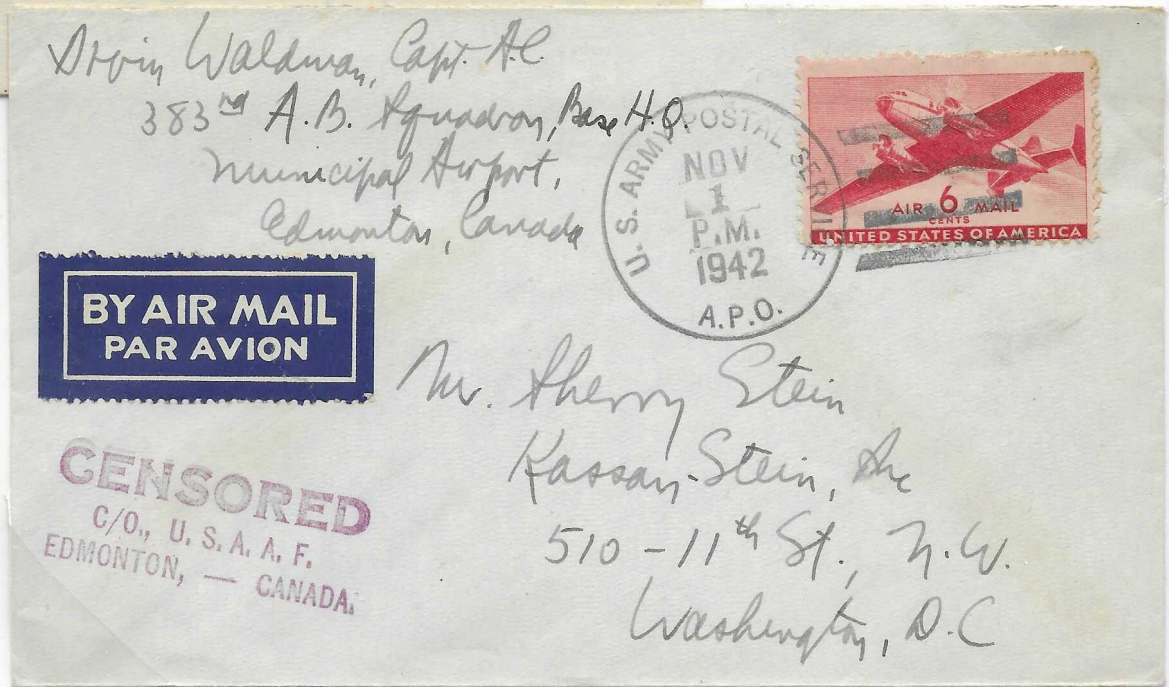 Irvin Waldman, Capt. A.C.
383rd A.B. Squadron, Base H.Q.
Municipal Airport,
Edmonton, Canada
U.S. ARMY POSTAL SERVICE
NOV
1
P.M.
1942
A.P.O.
AIR 6 MAIL
CENTS
UNITED STATES OF AMERICA
BY AIR MAIL
PAR AVION
Mr. Sherry Stein
Kassan-Stein, Inc
510-11th St., N.W.
Washington, D.C
CENSORED
C/O., U. S. A. A. F.
EDMONTON, — CANADA.